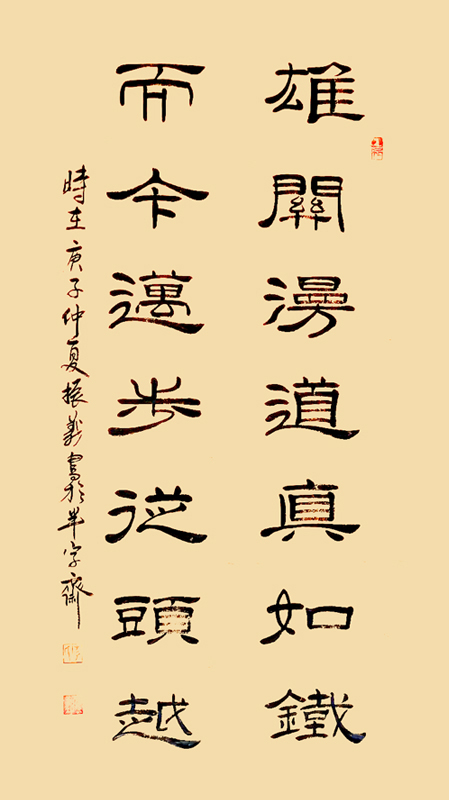 雄關漫道真如鐵
而今邁步從頭越
時在庚子仲夏振義書於半字齋